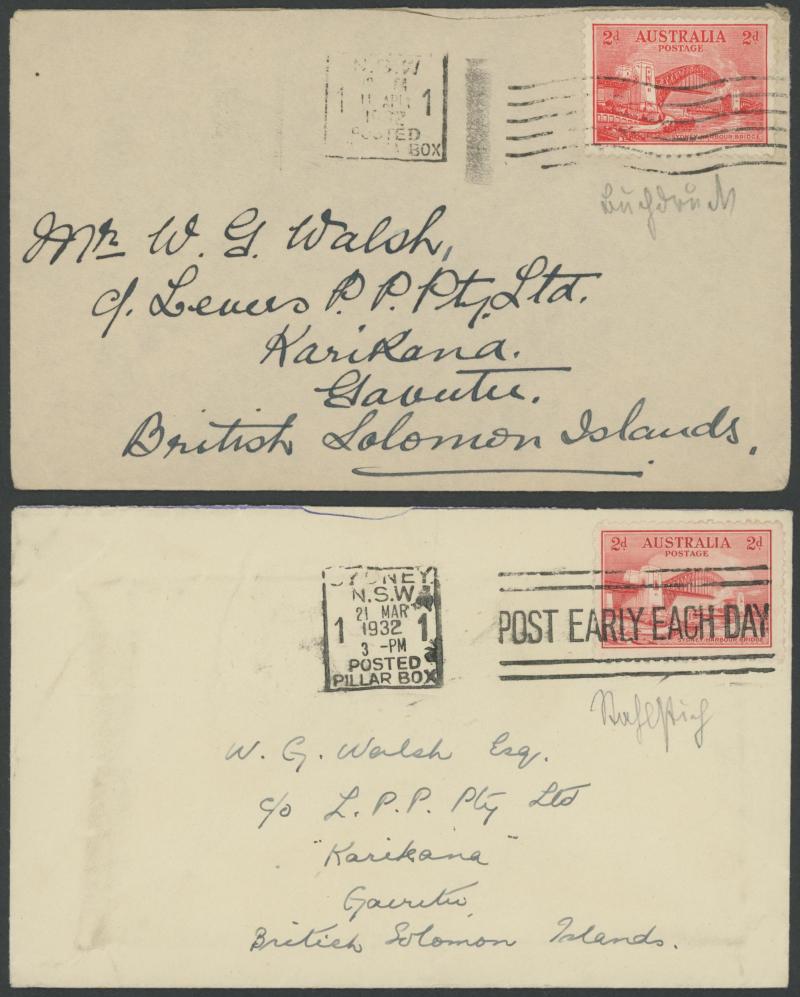 2d AUSTRALIA 2d
POSTAGE
SYDNEY HARBOUR BRIDGE
N.S.W
1 11 APR 1
1932
POSTED
BOX
Buchdruck
Mr W. G. Walsh,
c/. Levers P. P. Pty. Ltd.
Karikana.
Gavutu.
British Solomon Islands.
2d AUSTRALIA 2d
POSTAGE
SYDNEY HARBOUR BRIDGE
SYDNEY.
N.S.W
21 MAR
1 1932 1
3 -PM
POSTED
PILLAR BOX
POST EARLY EACH DAY
Stahlstich
W. G. Walsh Esq.
c/o L. P. P. Pty Ltd
"Karikana"
Gavutu
British Solomon Islands.